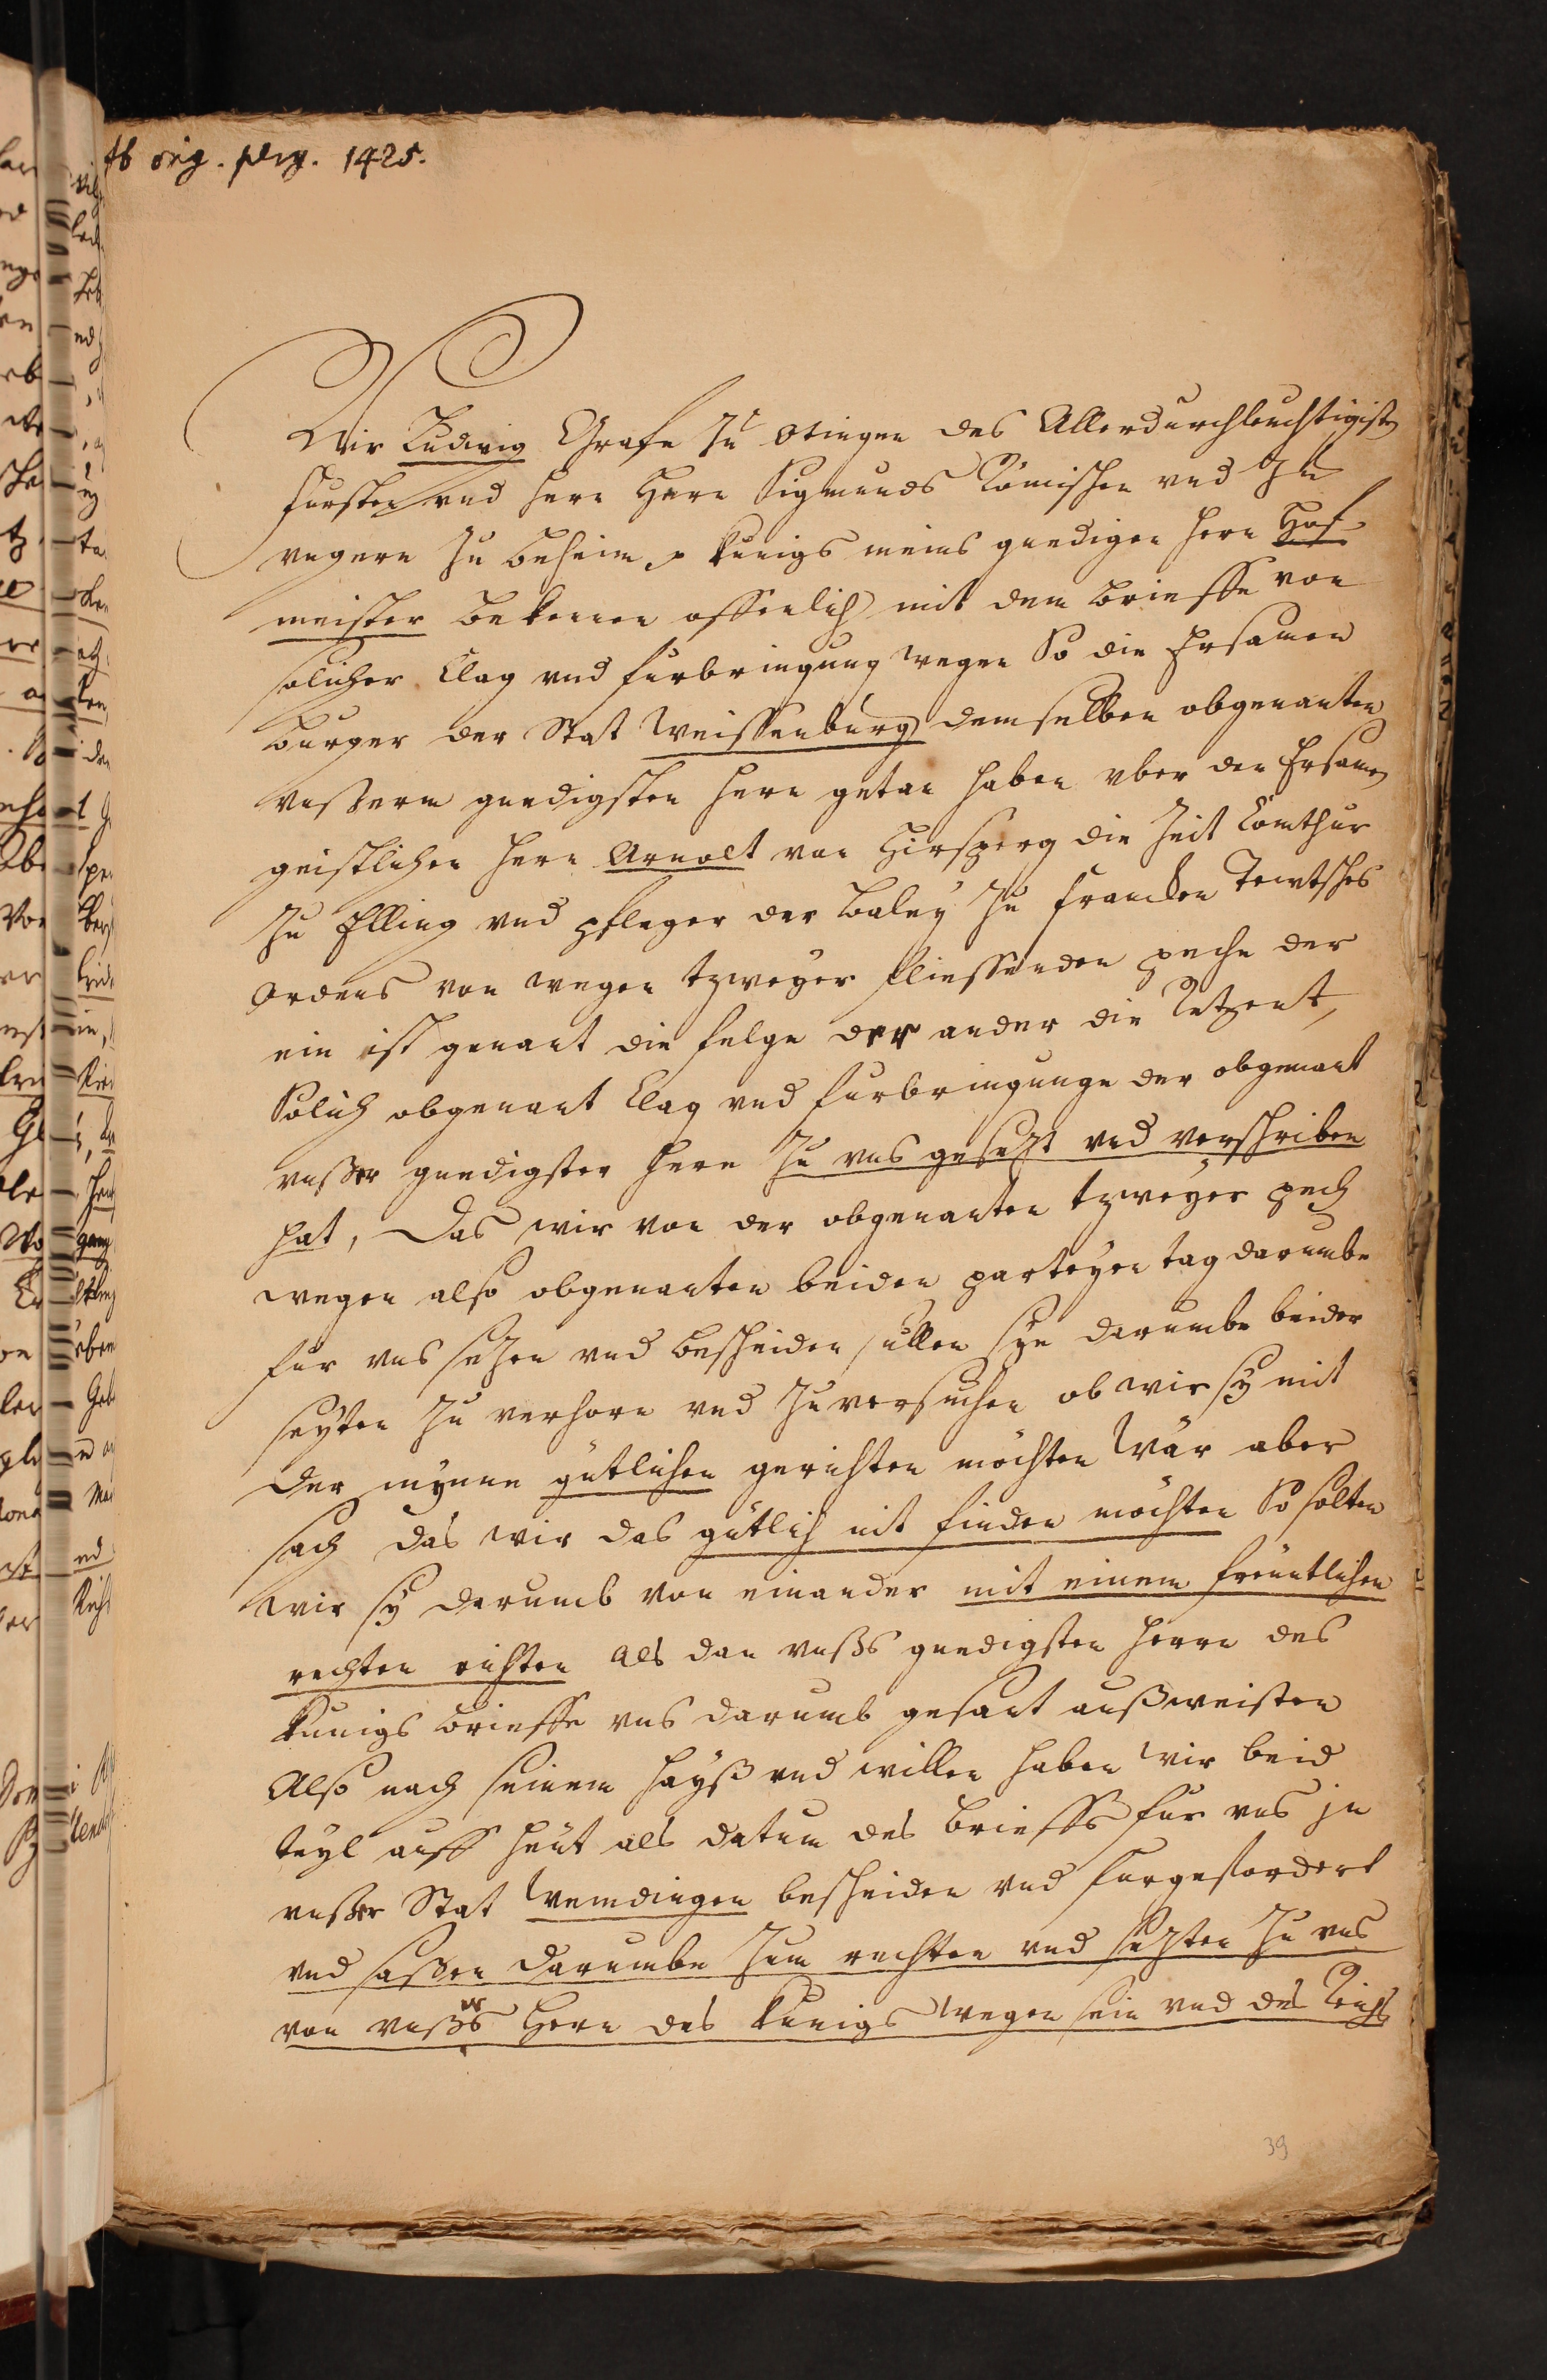 Ab orig. perg. 1425.
Wir Ludwig Grafe zu Otingen des Allerdurchleuchtigisten
fursten vnd hern Hern Sigmunds Römischen vnd zu
vngern zu beheim kunigs meins gnedigen hern Hof
meister bekennen offenlich mit dem brieffe von
solicher Clag vnd furbringung wegen So die Ersamen
burger der Stat Weissenburg demselben obgenanten
vnßerm gnedigsten hern getan haben vber den Ersamen
geistlichen hern Arnolt von Hirsperg die Zeit Comthur
zu Elling vnd pfleger der baley zu francken Tewtsches
Ordens von wegen tzweyer fliessenden peche der
ein ist genant die felge der ander die Retzent,
Solich obgenant Clag vnd furbringunge der obgenant
vnßer gnedigster herr zu vns gesetzt vnd verschriben
hat, Das wir von der obgenanten tzweyer pech
wegen also obgenanten beiden parteyen tag darumbe
fur vns setzen vnd bescheiden sullen sye darumbe beider
seyten zu verhorn vnd zuversuchen ob wir sy mit
der mynne gütlichen gerichten möchten Wär aber
sach das wir das gütlich nit finden möchten So solten
wir sy darumb von einander mit einem freuntlichen
rechten richten als dan vnßs gnedigsten herrn des
kunigs brieffe vns darumb gesant außweisten
Also nach seinem hayß vnd willen haben wir beid
teyl auff heut als datum des brieffs fur vns in
vnßer Stat Wemdingen bescheiden vnd furgefordert
vnd saßen darumbe zum rechten vnd setzten zu vns
von vnßers Hern des kunigs wegen sein vnd des Reichs
39